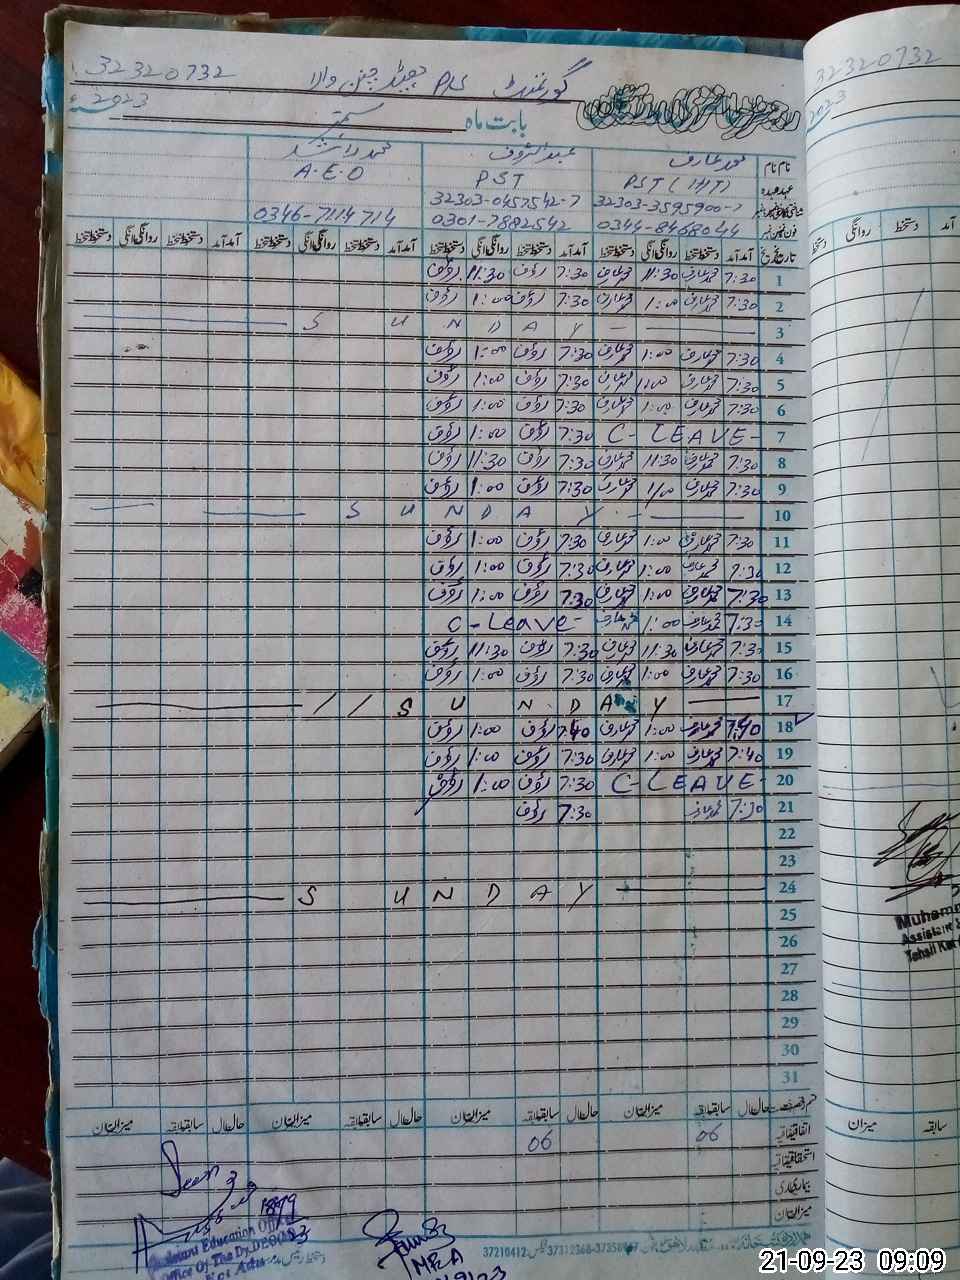 32320732 گورنمنٹ P/S چن والا
2023 بابت ماہ ستمبر
نام محمد عارف عبدالرؤف محمد راشد
عہدہ PST (H/T) PST A.E.O
32303-3595900-7 32303-0457542-7
فون نمبر 0344-8468044 0301-7882542 0346-7114714
تاریخ آمد دستخط روانگی دستخط آمد دستخط روانگی دستخط آمد دستخط روانگی دستخط آمد دستخط روانگی دستخط
1 7:30 محمد عارف 11:30 محمد عارف 7:30 رؤف 11:30 رؤف
2 7:30 محمد عارف 1:00 محمد عارف 7:30 رؤف 1:00 رؤف
3 SUNDAY
4 7:30 محمد عارف 1:00 محمد عارف 7:30 رؤف 1:00 رؤف
5 7:30 محمد عارف 1:00 محمد عارف 7:30 رؤف 1:00 رؤف
6 7:30 محمد عارف 1:00 محمد عارف 7:30 رؤف 1:00 رؤف
7 C-LEAVE- 7:30 رؤف 1:00 رؤف
8 7:30 محمد عارف 11:30 محمد عارف 7:30 رؤف 11:30 رؤف
9 7:30 محمد عارف 1:00 محمد عارف 7:30 رؤف 1:00 رؤف
10 SUNDAY
11 7:30 محمد عارف 1:00 محمد عارف 7:30 رؤف 1:00 رؤف
12 7:30 محمد عارف 1:00 محمد عارف 7:30 رؤف 1:00 رؤف
13 7:30 محمد عارف 1:00 محمد عارف 7:30 رؤف 1:00 رؤف
14 7:30 محمد عارف 1:00 محمد عارف C-Leave-
15 7:30 محمد عارف 11:30 محمد عارف 7:30 رؤف 11:30 رؤف
16 7:30 محمد عارف 1:00 محمد عارف 7:30 رؤف 1:00 رؤف
17 SUNDAY
18 7:40 محمد عارف 1:00 محمد عارف 7:40 رؤف 1:00 رؤف
19 7:40 محمد عارف 1:00 محمد عارف 7:30 رؤف 1:00 رؤف
20 C-LEAVE- 7:30 رؤف 1:00 رؤف
21 7:30 محمد عارف 7:30 رؤف
22
23
24 SUNDAY
25
26
27
28
29
30
31
قسم رخصت حال سابقہ میزان حال سابقہ میزان حال سابقہ میزان حال سابقہ میزان
اتفاقیہ 06 06
استحقاقیہ
بیماری
میزان
Assistant Education Officer
Office Of The Dy.DEO
MEA
37210412
32320732
2023
آمد دستخط روانگی دستخط
Muhamm
Assistant
Tehsil Kot
سابقہ میزان
21-09-23 09:09